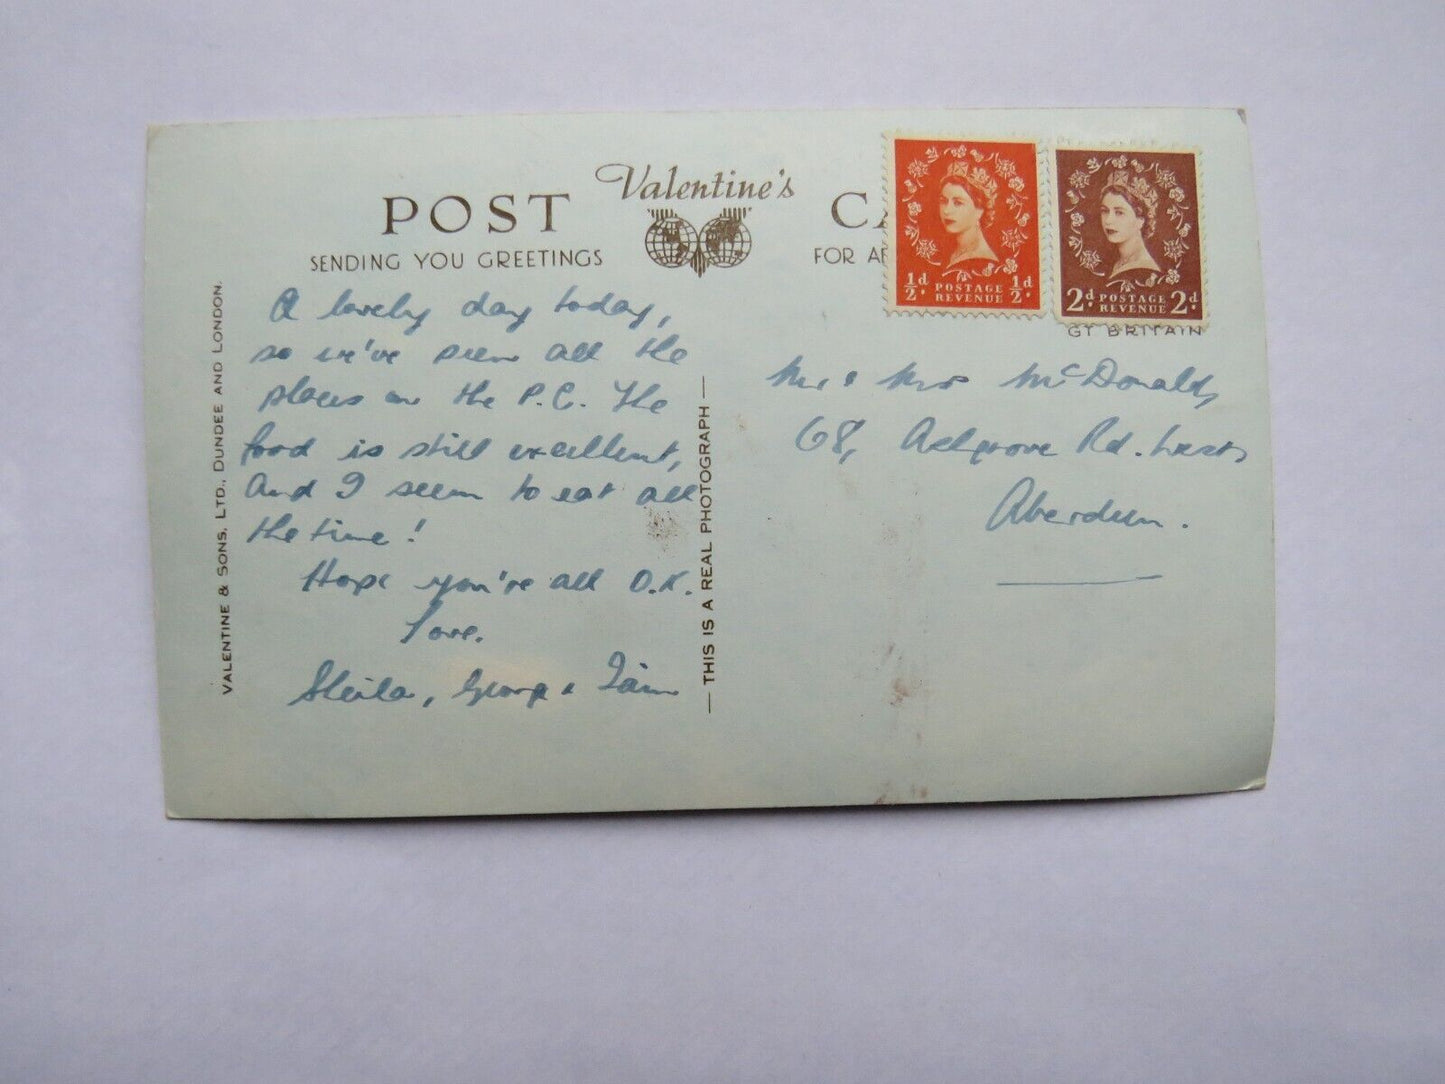 POST Valentine's CA
SENDING YOU GREETINGS FOR A
A lovely day today,
so we've seen all the
places on the P.C. The
food is still excellent,
and I seem to eat all
the time!
Hope you're all O.K.
Love.
Sheila, George & Iain
VALENTINE & SONS, LTD., DUNDEE AND LONDON.
— THIS IS A REAL PHOTOGRAPH —
½d POSTAGE ½d
REVENUE
2d POSTAGE 2d
REVENUE
GT BRITAIN
Mr & Mrs McDonald,
68, Ashgrove Rd. West,
Aberdeen.